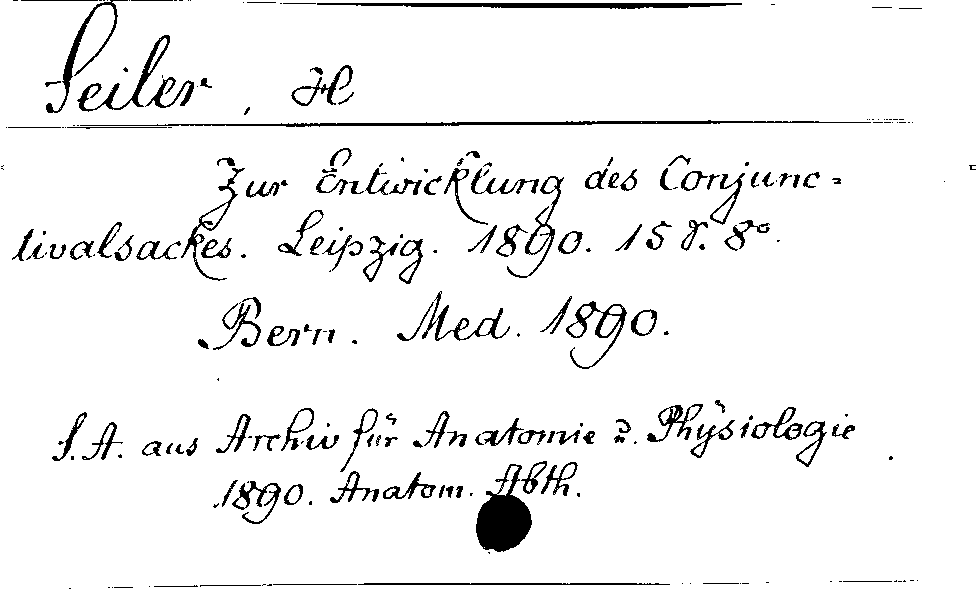 Seiler, H
Zur Entwicklung des Conjunc-
tivalsackes. Leipzig. 1890. 15 S. 8°.
Bern. Med. 1890.
S. A. aus Archiv für Anatomie u. Physiologie
1890. Anatom. Abth.